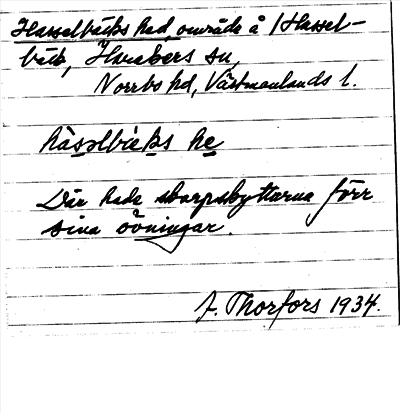 Hasselbäcks hed, område å /Hassel-
bäck, Harakers sn,
Norrbo hd, Västmanlands l.
hàsəlbèks he
Där hade skarpskyttarna förr
sina övningar.
J. Thorfors 1934.